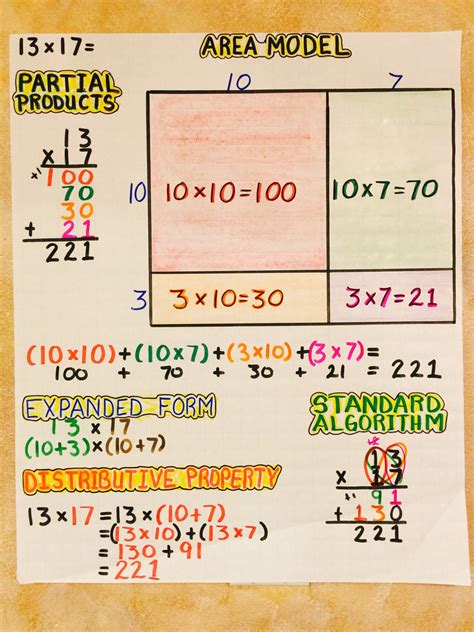 13×17=
AREA MODEL
PARTIAL
PRODUCTS
13
×17
100
70
30
+ 21
221
10 7
10 10×10=100 10×7=70
3 3×10=30 3×7=21
(10×10)+(10×7)+(3×10)+(3×7)=
100 + 70 + 30 + 21 = 221
EXPANDED FORM
13 × 17
(10+3)×(10+7)
DISTRIBUTIVE PROPERTY
13×17=13×(10+7)
=(13×10)+(13×7)
=130+91
=221
STANDARD
ALGORITHM
13
× 17
91
+130
221